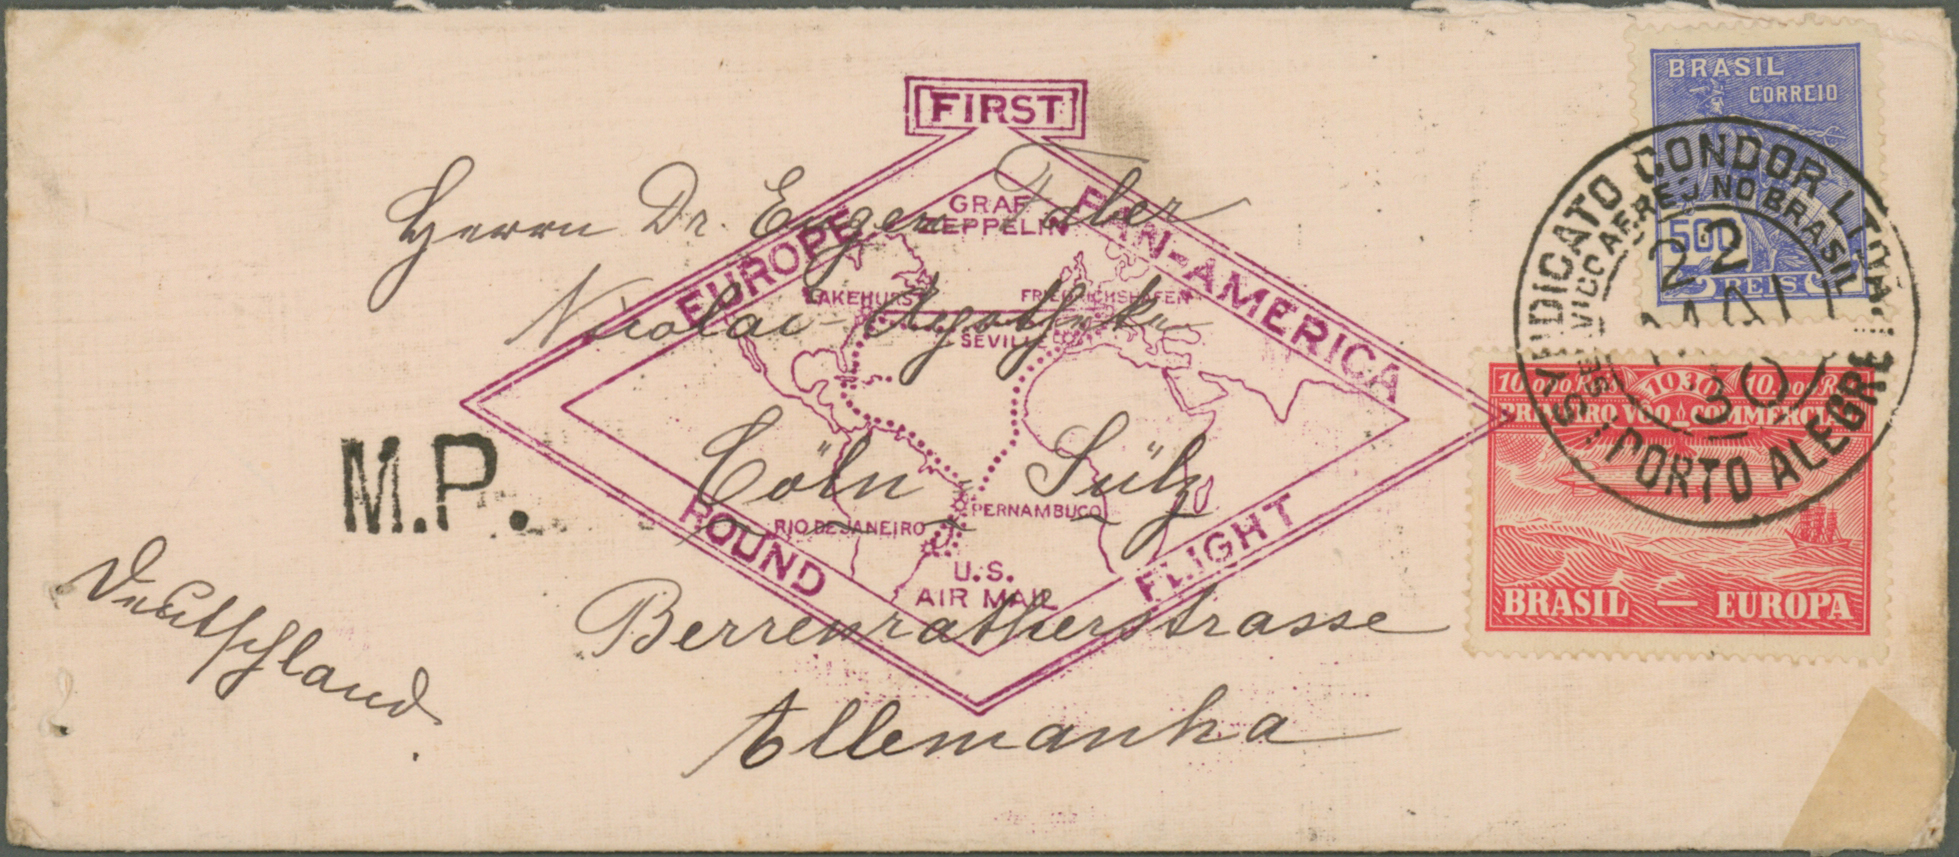 FIRST
EUROPE PAN-AMERICA
ROUND FLIGHT
GRAF
ZEPPELIN
LAKEHURST
FRIEDRICHSHAFEN
SEVILLE
PERNAMBUCO
RIO DE JANEIRO
U.S.
AIR MAIL
Herrn Dr. Eugen Adler
Nicolai-Apotheke
Cöln - Sülz
Berrenratherstrasse
Allemanha
Deutschland
M.P.
BRASIL
CORREIO
500
REIS
SYNDICATO CONDOR LTDA.
SERVIÇO AEREO NO BRASIL
22
MAI
30
PORTO ALEGRE
1930
PRIMEIRO VOO COMMERCIAL
BRASIL — EUROPA